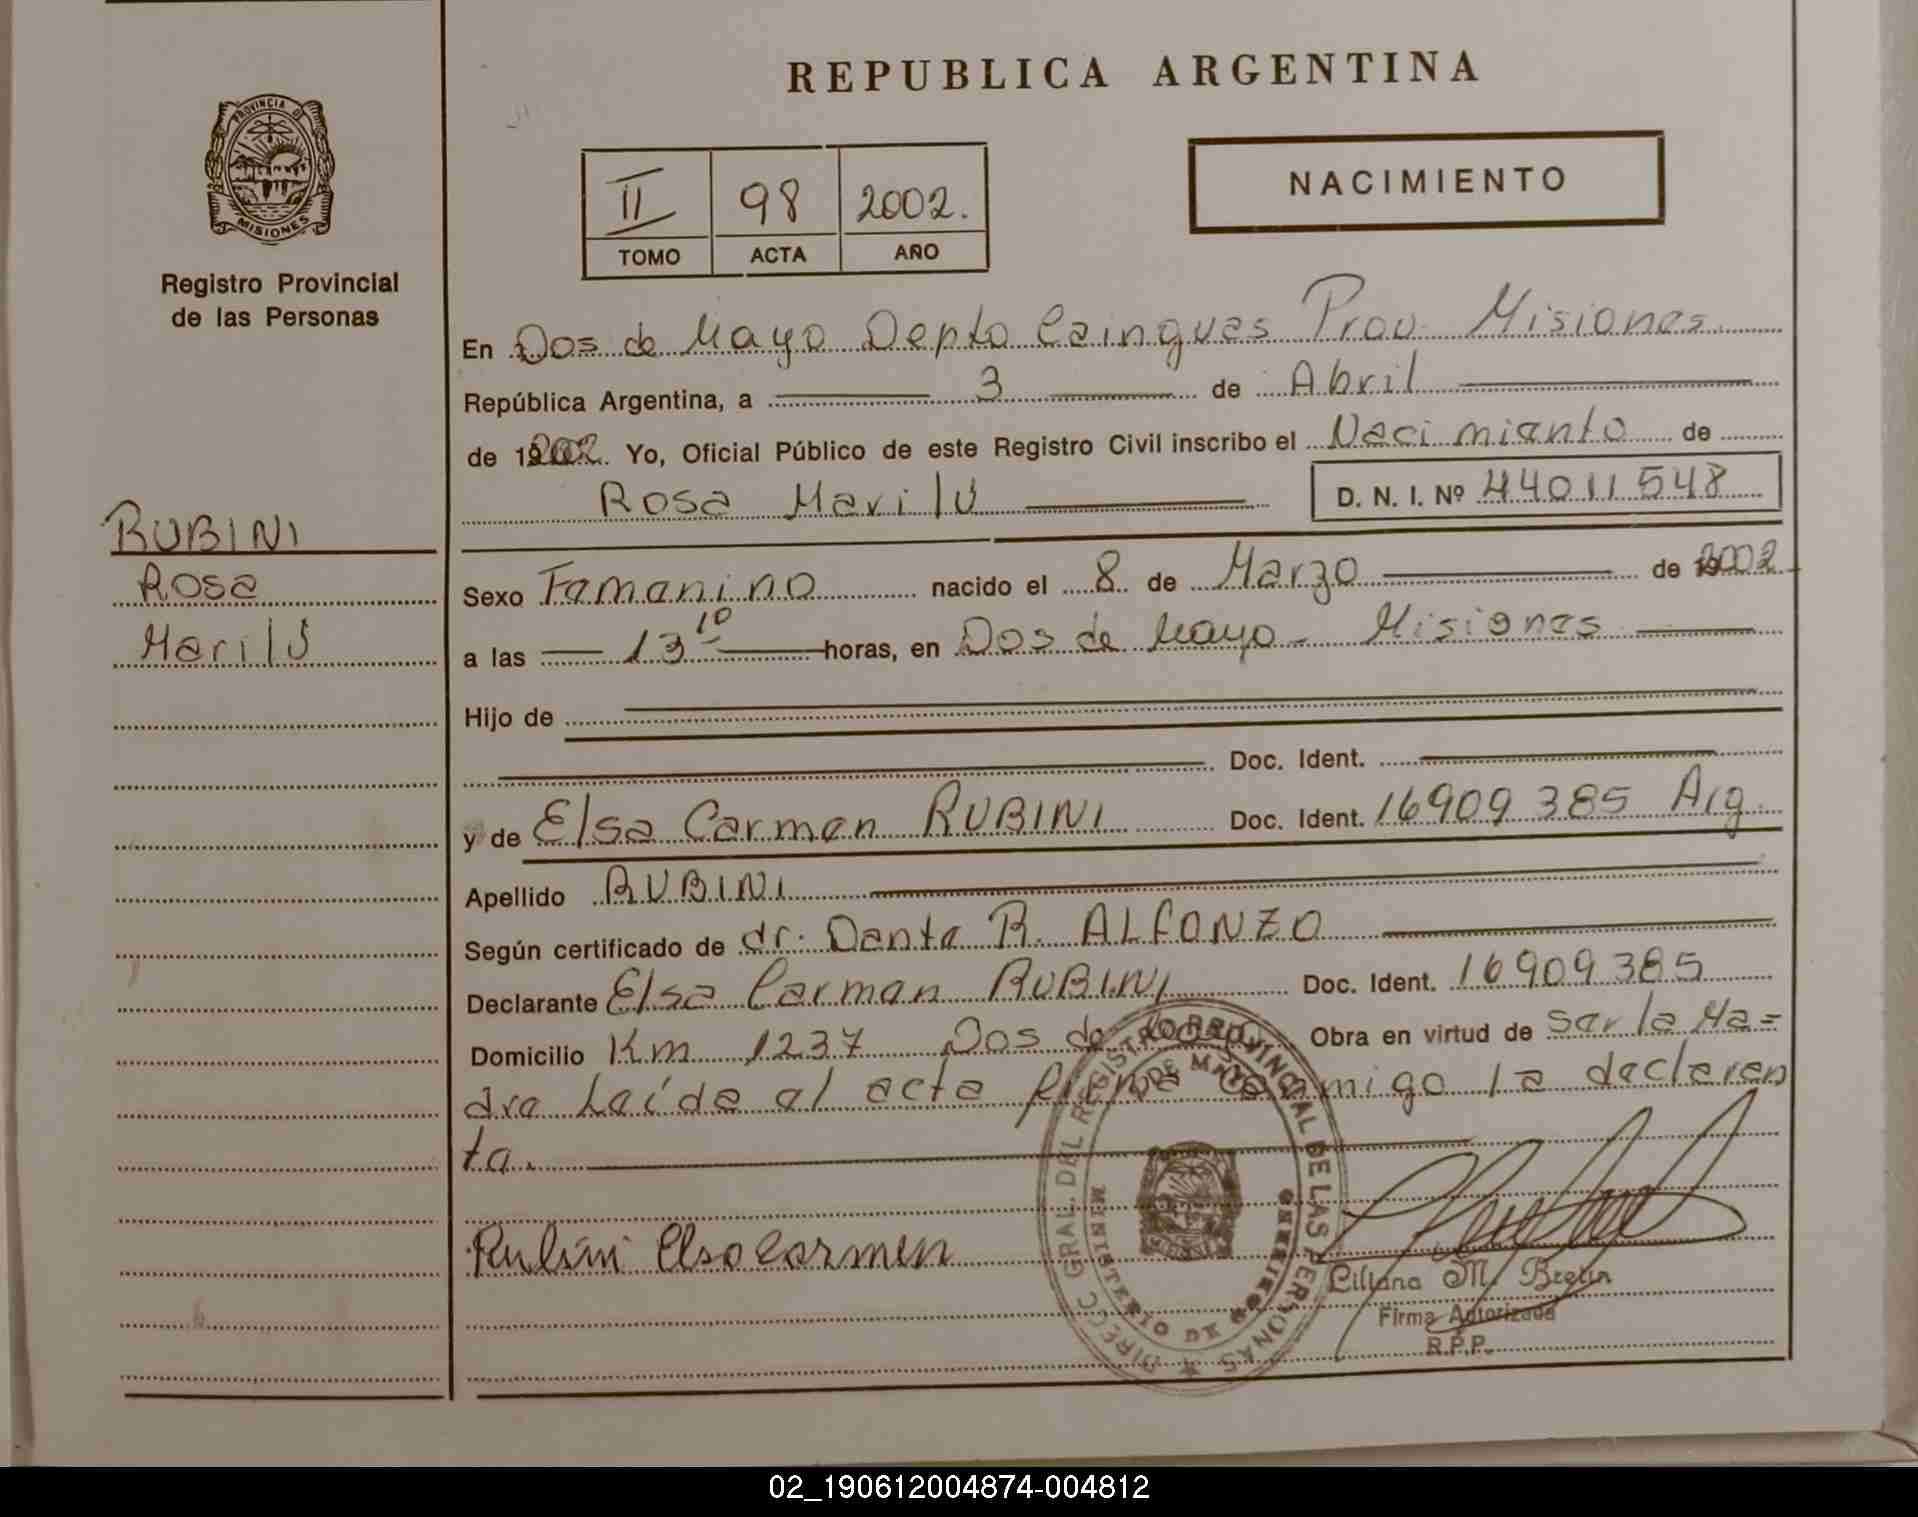 REPUBLICA ARGENTINA
PROVINCIA D
MISIONES
Registro Provincial
de las Personas
II 98 2002.
TOMO ACTA AÑO
NACIMIENTO
En Dos de Mayo Depto Cainguas Prov. Misiones
República Argentina, a 3 de Abril
de 2002. Yo, Oficial Público de este Registro Civil inscribo el Nacimiento de
Rosa Marilú D. N. I. Nº 44011548
RUBINI
Rosa
Marilú
Sexo Femenino nacido el 8 de Marzo de 2002
a las 13 10 horas, en Dos de Mayo - Misiones
Hijo de
Doc. Ident.
y de Elsa Carmen RUBINI Doc. Ident. 16909385 Arg.
Apellido RUBINI
Según certificado de dr. Dante R. ALFONZO
Declarante Elsa Carmen RUBINI Doc. Ident. 16909385
Domicilio Km 1237 Dos de Mayo Obra en virtud de ser la Ma=
dre Leída el acta firma conmigo la declaran
te.
Rubini Elsa Carmen
DIREC. GRAL. DEL REGISTRO PROVINCIAL DE LAS PERSONAS
DOS DE MAYO
MINISTERIO DE GOBIERNO
Liliana M. Brelin
Firma Autorizada
R.P.P.
02_190612004874-004812